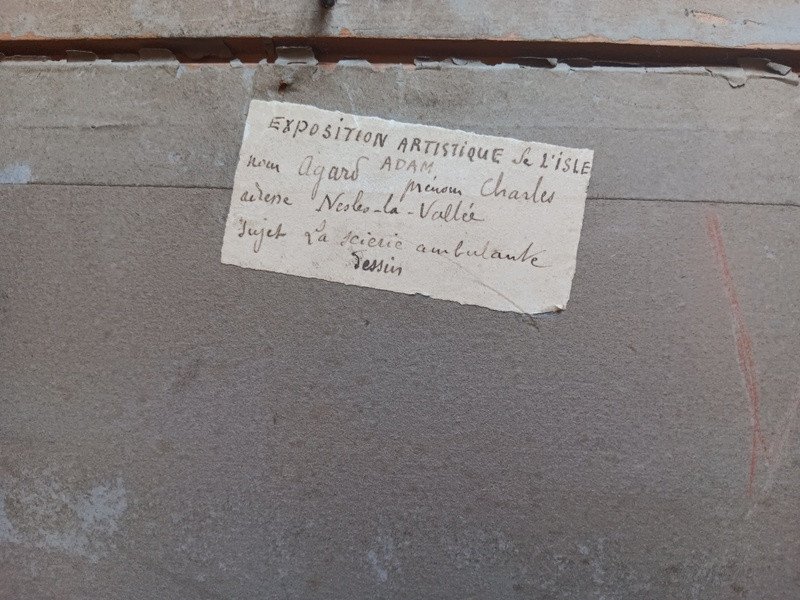 EXPOSITION ARTISTIQUE de L'ISLE
nom Agard ADAM prénom Charles
adresse Nesles-la-Vallée
Sujet La scierie ambulante
dessin